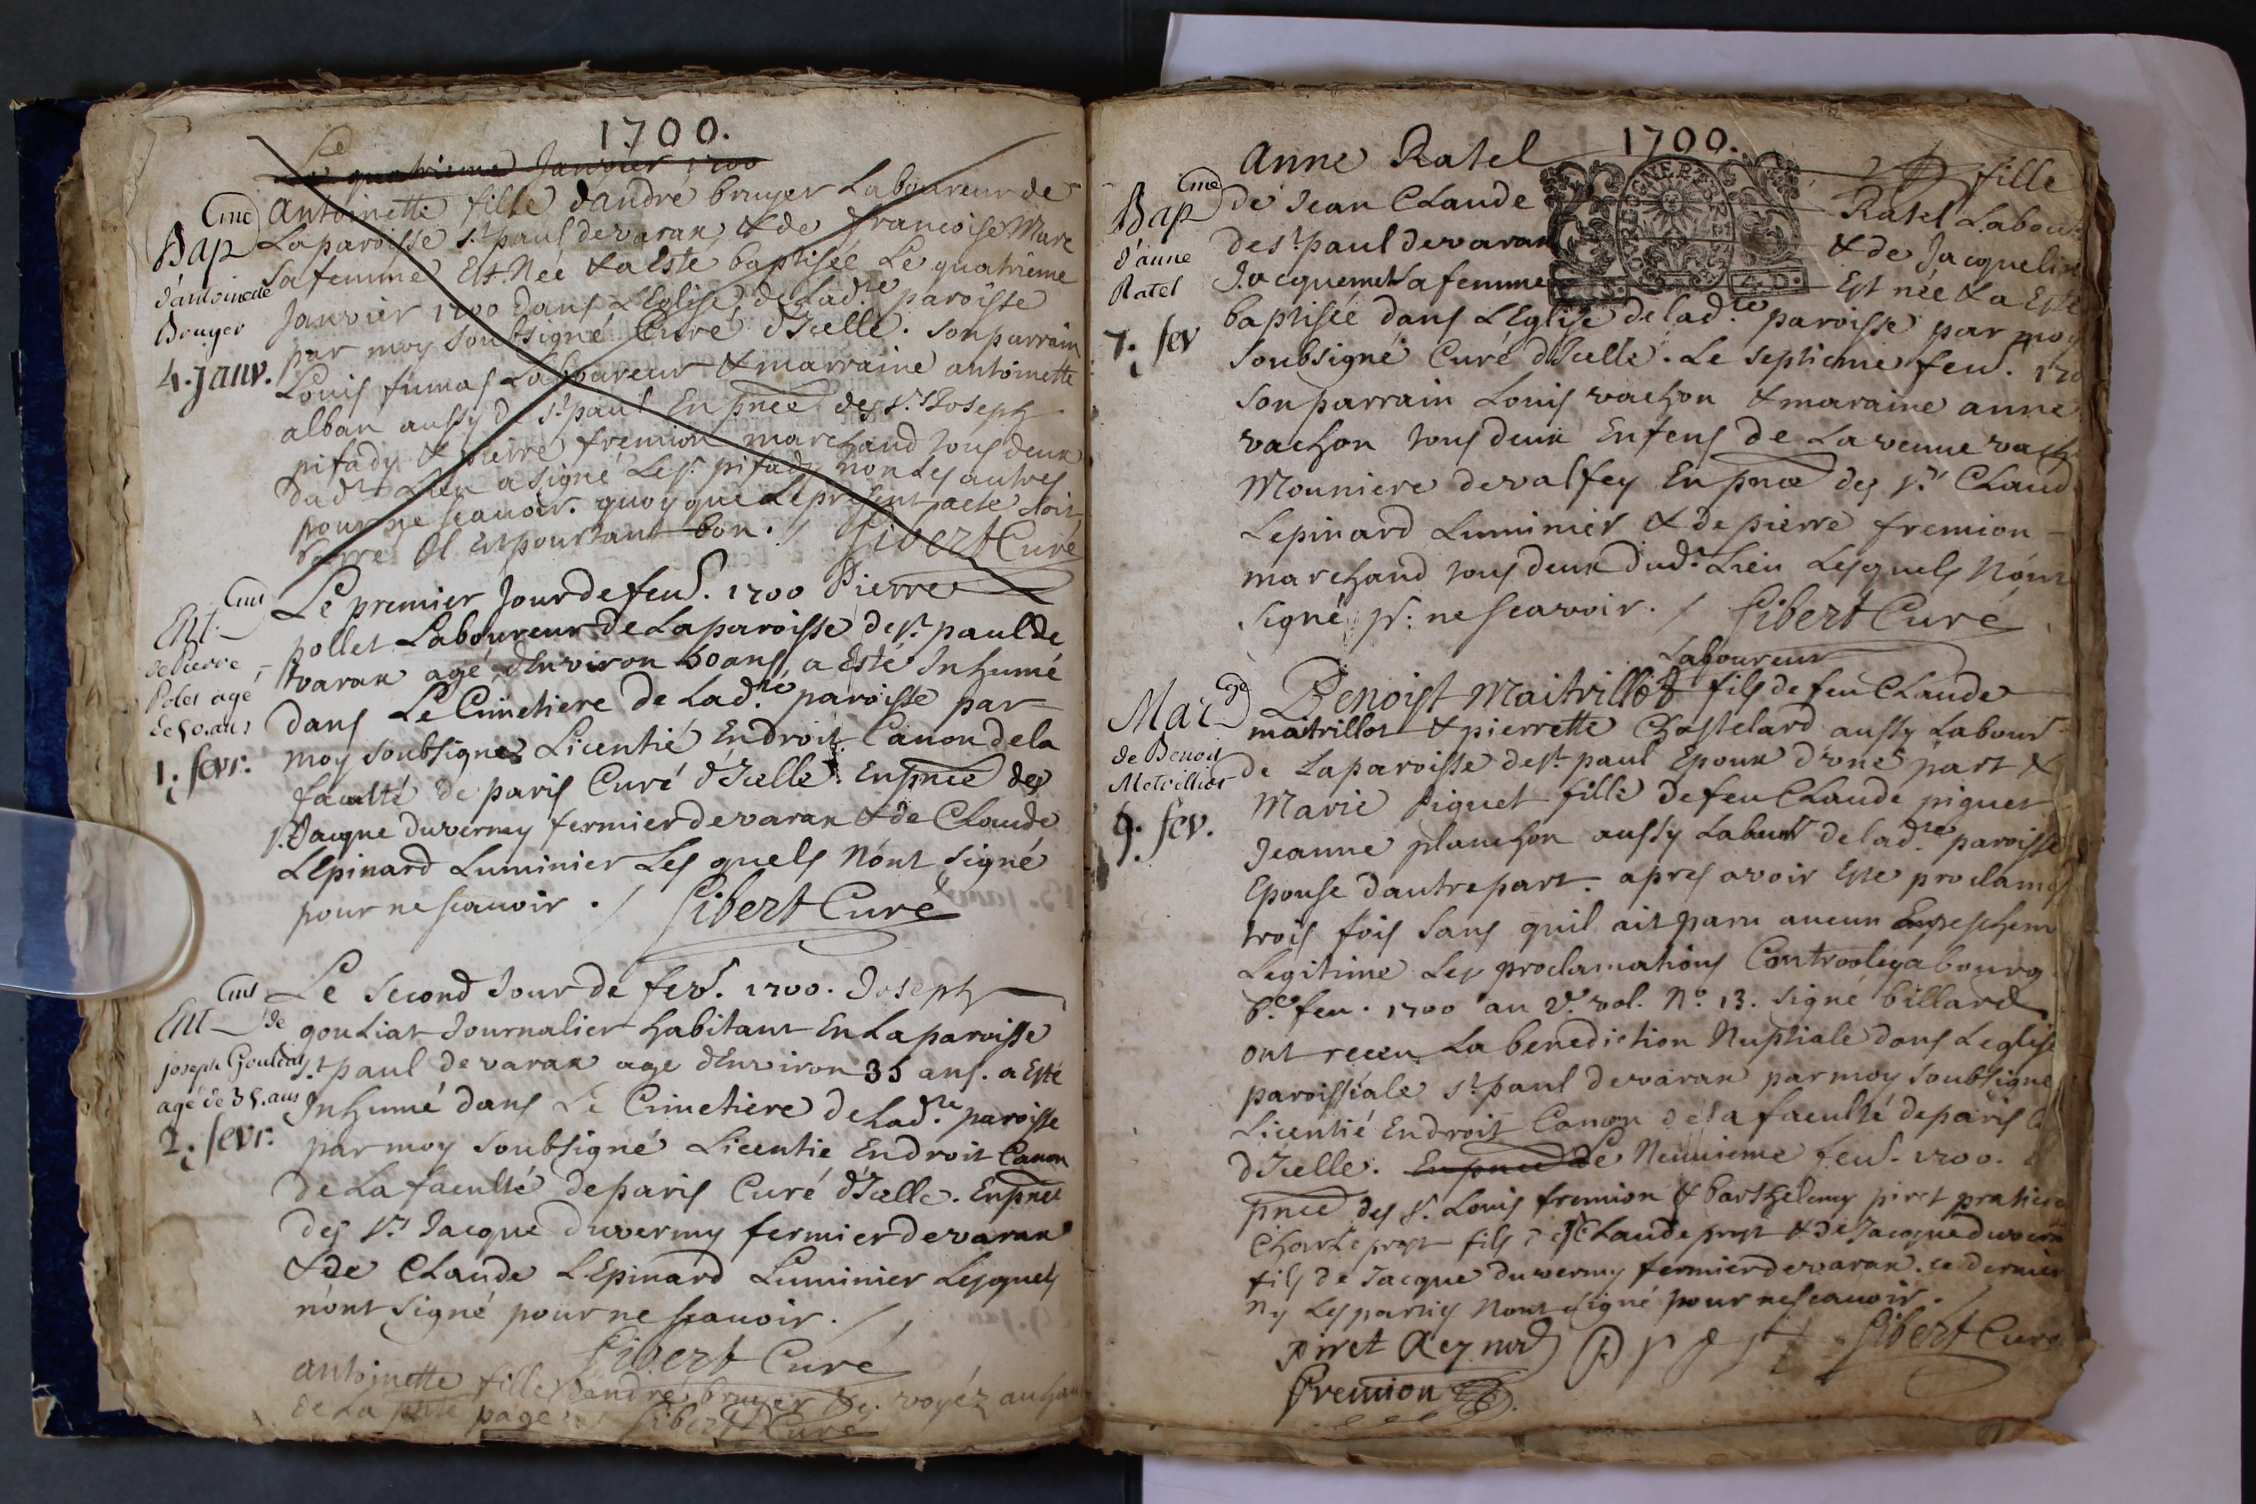 1700.
Le quatrieme Janvier 1700
Bap cme
d'antoinette
Bruyer
4. janv.
antoinette fille d'andré bruyer Laboureur de
Laparoisse st paul devarax & de francoise Marc
sa femme Est Née & a Este baptisée Le quatrieme
Janvier 1700 dans L'Eglise de Lad.te paroisse
par moy soubsigné Curé d'Icelle. son parrain
Louis fumas Laboureur & marraine antoinette
alban aussy de st paul En pnce des sr Joseph
pifady & pierre fremion marchand tous deux
dud.t Lieu a signé Le sr pifady non Les autres
pour ne scavoir. quoy que Le present acte soit
barré Il Est pourtant bon. / Gibert Curé
Ent. cmt
de Pierre
Polet agé
de 50. ans
1. fevr.
Le premier Jour de feu. 1700 Pierre
pollet Laboureur de Laparoisse de st paul de
varax agé d'Environ 50 ans, a Esté Inhumé
dans Le Cimetiere de Lad.te paroisse par
moy soubsigné Licentié En droit Canon dela
faculté de paris Curé d'Icelle. En pnce des
sr Jacque duverney fermier devarax & de Claude
LEpinard Luminier Les quels Nónt signé
pour ne scavoir. / Gibert Curé
Ent cmt de
joseph Gouliat
agé de 35. ans
2. fevr.
Le second Jour de fev. 1700. Joseph
gouliat Journalier habitant En Laparoisse
st paul devarax age d'Environ 35 ans. a Esté
Inhumé dans Le Cimetiere de Lad.te paroisse
par moy soubsigné Licentie En droit Canon
de La faculté de paris Curé d'Icelle. En pnce
des srs Jacque duverny fermier devarax
& de Claude LEpinard Luminier Lesquels
n'ont signé pour ne scavoir. /
Gibert Curé
antoinette fille d'andré bruyer &c. voyéz au hau
de La page. Gibert Curé
1700.
Bap cme
d'anne
Ratel
7. fev
anne Ratel fille
de Jean Claude Ratel Labour
de st paul devarax & de Jacqueline
Jacquemet sa femme Est née & a Esté
baptisée dans L'Eglise de lad.te paroisse par moy
soubsigné Curé d'Icelle. Le septieme feu. 170
son parrain Louis vachon & maraine anne
vachon tous deux Enfens de La veuve vach
Mouniere devalfey En pnce des srs Claud
Lepinard Luminier & de pierre fremion
marchand tous deux dud.t Lieu Lesquels Nónt
signé pr: ne scavoir. / Gibert Curé
Mar ge
de Benoit
Metrillot
9. fev.
Laboureur
Benoist Maitrillot fils de feu Claude
maitrillot & pierrette Chastelard aussy Labour
de Laparoisse de st paul Epoux d'une part &
Marie piguet fille de feu Claude piguet
Jeanne planchon aussy Labour de lad.te paroisse
Epouse dautre part. apres avoir Este proclames
trois fois sans quil ait paru aucun Enpeschem
Legitime Les proclamations Controoleesabourg
6.e feu. 1700 au 2.e vol. N.o 13. signé billard
ont receu La benediction Nuptiale dans Leglise
paroissiale st paul devarax par moy soubsigne
Licentié En droit Canon dela faculté de paris C
d'Icelle. En pnce de Le Neuuieme feu. 1700. E
pnce des s. Louis fremion & barthelemy piret pratici
Charle prost fils de Claude prost & de Jacque duvern
fils de Jacque duverny fermier devarax. ce dernier
ny Les parties Nont signé pour ne scavoir. /
piret Reynod Prost Gibert Curé
Fremion